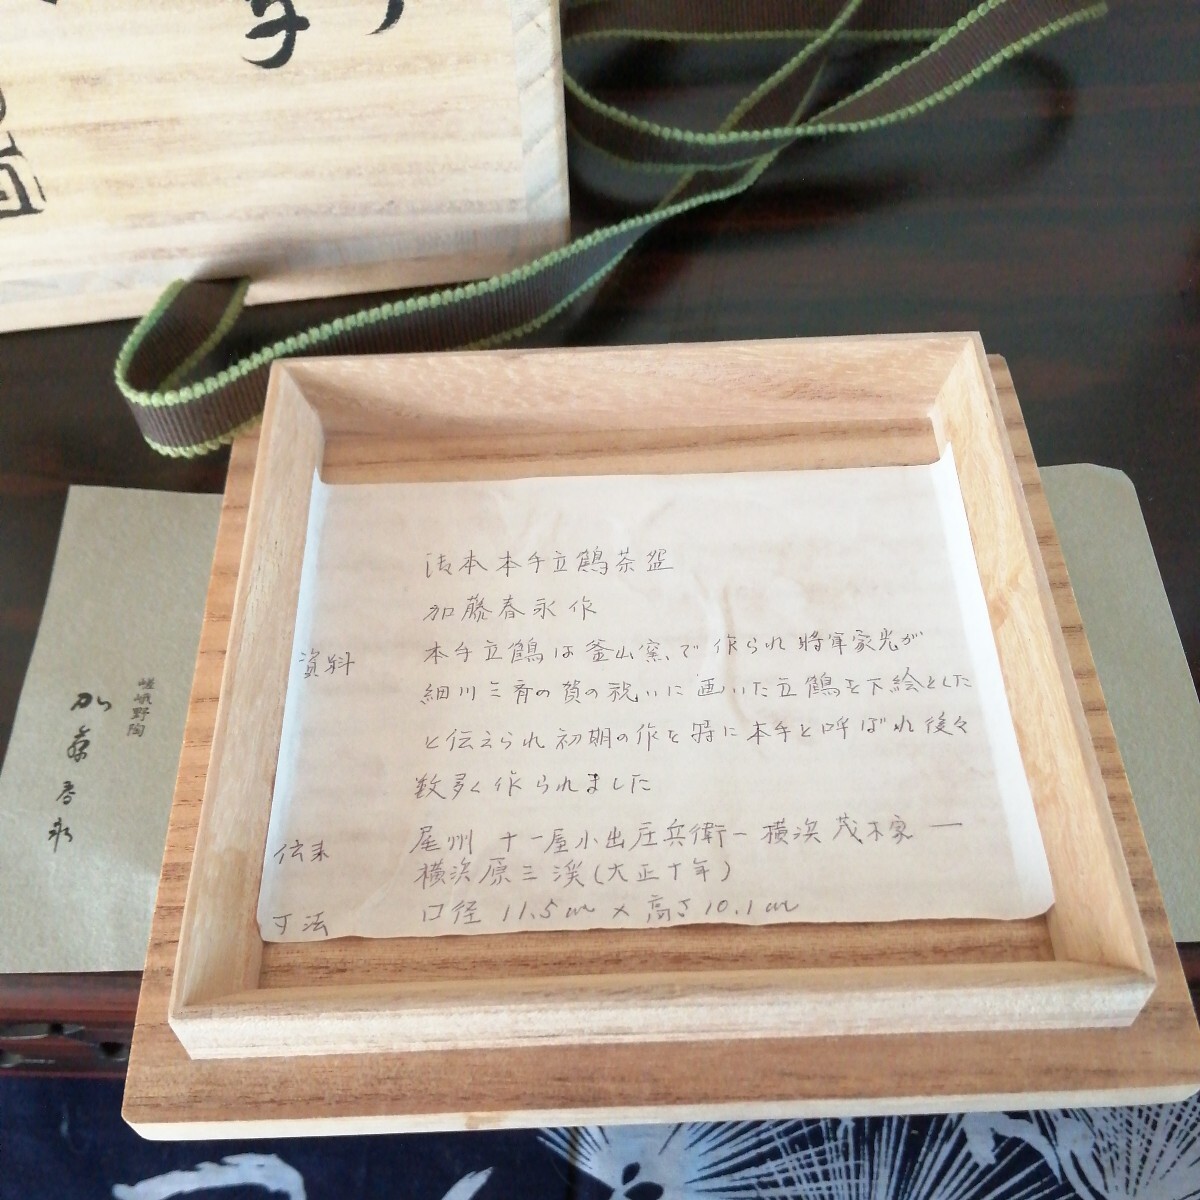 本手立鶴茶盌
加藤春永作
資料
本手立鶴は釜山窯で作られ将軍家光が
細川三斉の賀の祝いに画いた立鶴を下絵とした
と伝えられ初期の作を特に本手と呼ばれ後々
数多く作られました
伝来
尾州 十一屋小出庄兵衛ー横浜茂木家ー
横浜原三渓(大正十年)
寸法
口径 11.5cm×高さ10.1cm
嵯峨野陶
加藤春永